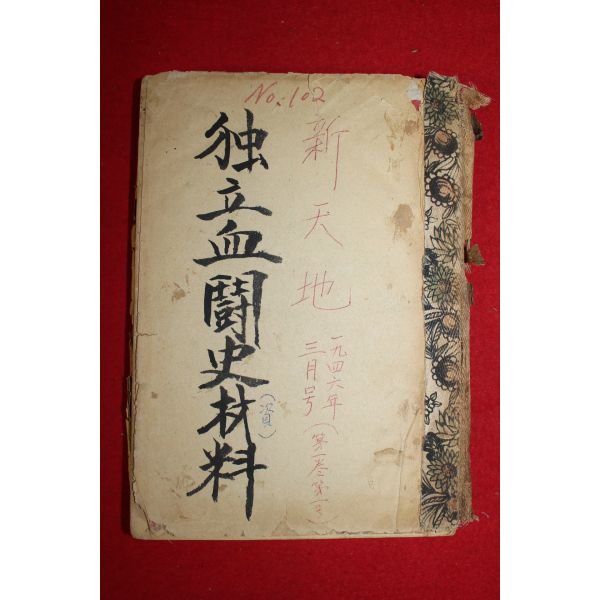 No. 102
新天地
一九四六年
三月号(第一巻第一号)
独立血闘史材料
(資)